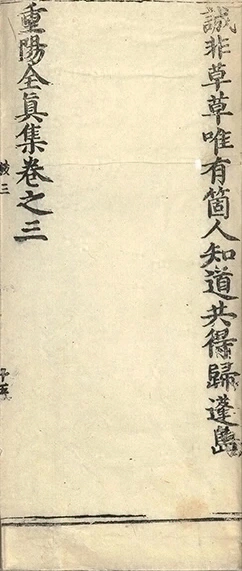 誠非草草唯有箇人知道共得歸蓬島
重陽全真集卷之三